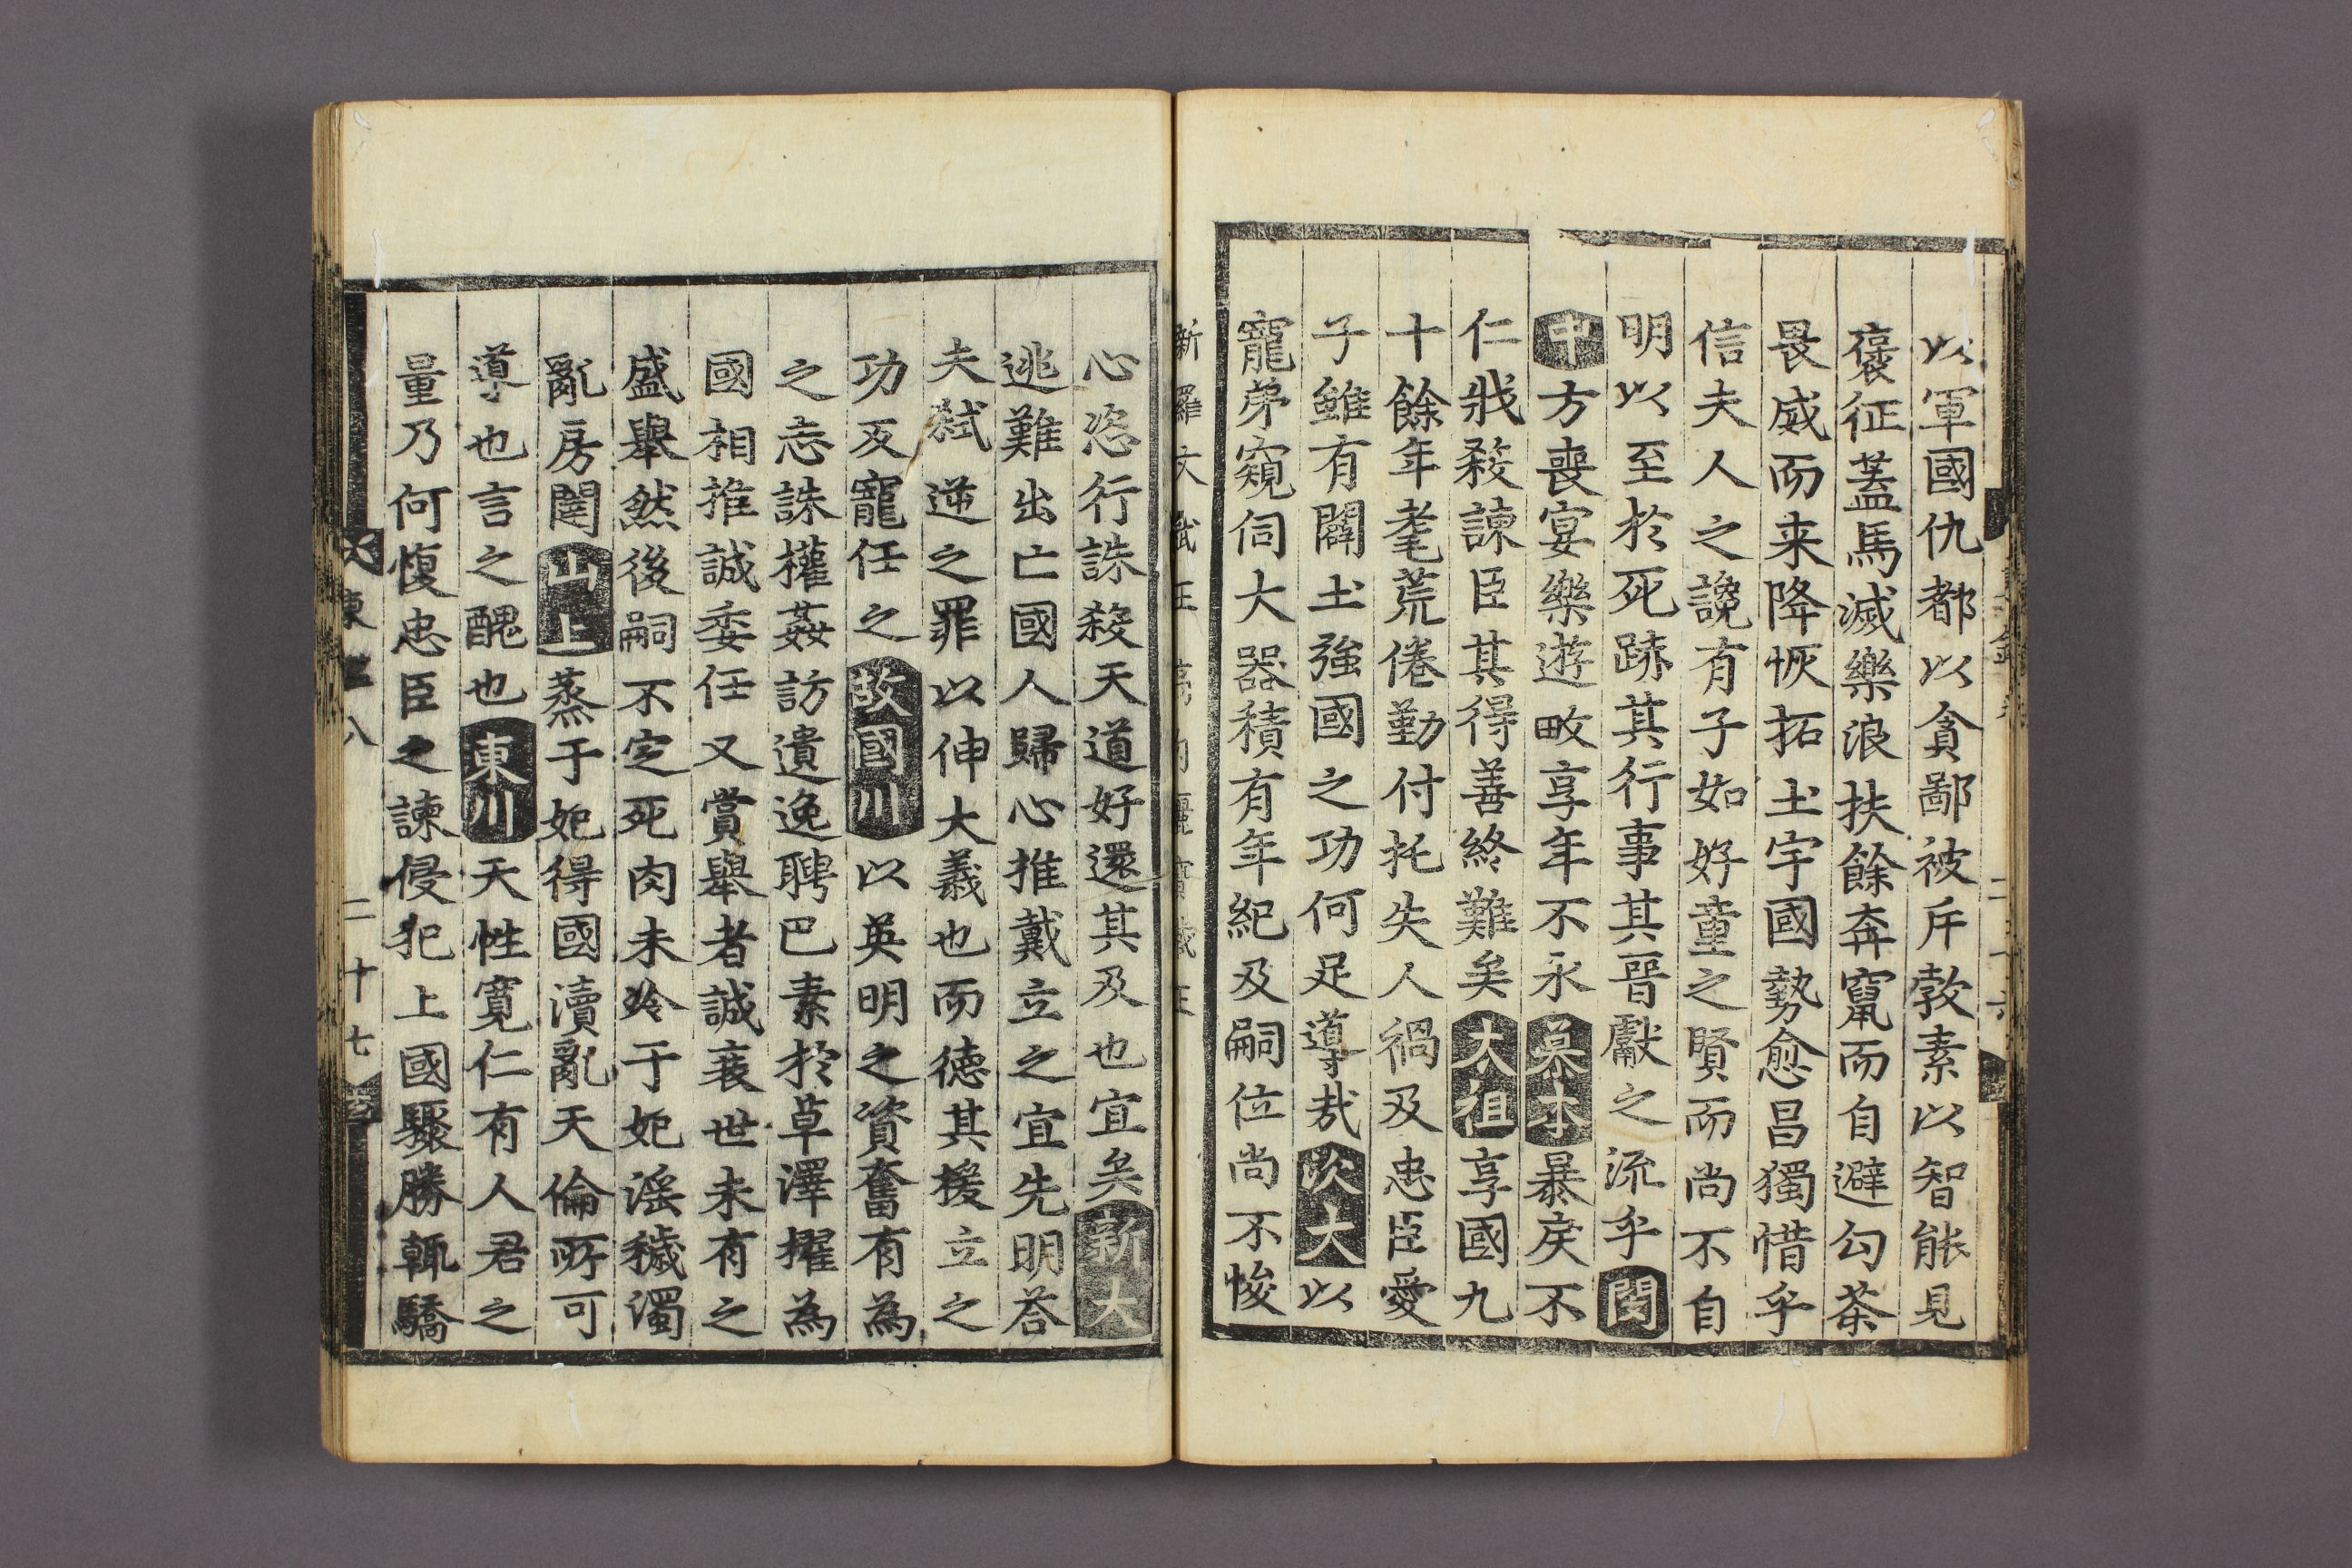 以軍國仇都以貪鄙被斥敦素以智能見
褒征盖馬滅樂浪扶餘奔竄而自避勾茶
畏威而来降恢拓土宇國勢愈昌獨惜乎
信夫人之讒有子如好童之賢而尚不自
明以至於死跡其行事其晉獻之流乎閔
中方喪宴樂遊畋享年不永慕本暴戾不
仁戕殺諫臣其得善終難矣太祖享國九
十餘年耄荒倦勤付托失人禍及忠臣愛
子雖有闢土強國之功何足噵哉次大以
寵弟窺伺大器積有年紀及嗣位尚不悛
新羅
心恣行誅殺天道好還其及也宜矣新大
逃難出亡國人歸心推戴立之宜先明荅
夫弑逆之罪以伸大義也而德其援立之
功及寵任之故國川以英明之資奮有為
之志誅權姦訪遺逸聘巴素於草澤擢為
國相推誠委任又賞舉者誠衰世未有之
盛舉然後嗣不定死肉未冷于妃淫穢濁
亂房闥山上蒸于妃得國瀆亂天倫所可
導也言之醜也東川天性寬仁有人君之
量乃何愎忠臣之諫侵犯上國驟勝輒驕
二十七